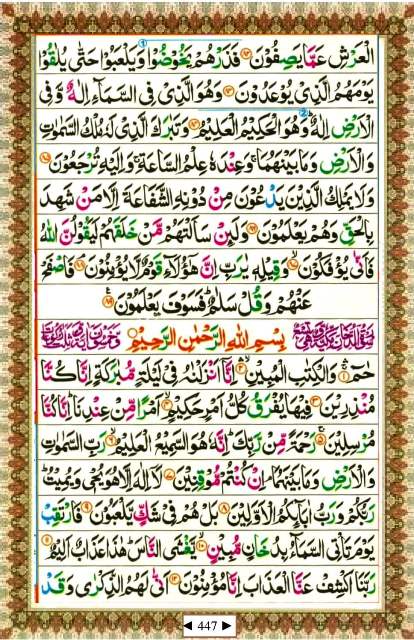 الْعَرْشِ عَمَّا يَصِفُوْنَ ۝۸۲ فَذَرْهُمْ يَخُوْضُوْا وَيَلْعَبُوْا حَتّٰى يُلٰقُوْا
يَوْمَهُمُ الَّذِيْ يُوْعَدُوْنَ ۝۸۳ وَهُوَ الَّذِيْ فِي السَّمَآءِ اِلٰهٌ وَّفِي
الْاَرْضِ اِلٰهٌ ؕ وَهُوَ الْحَكِيْمُ الْعَلِيْمُ ۝۸۴ وَتَبٰرَكَ الَّذِيْ لَهٗ مُلْكُ السَّمٰوٰتِ
وَالْاَرْضِ وَمَا بَيْنَهُمَا ۚ وَعِنْدَهٗ عِلْمُ السَّاعَةِ ۚ وَاِلَيْهِ تُرْجَعُوْنَ ۝۸۵
وَلَا يَمْلِكُ الَّذِيْنَ يَدْعُوْنَ مِنْ دُوْنِهِ الشَّفَاعَةَ اِلَّا مَنْ شَهِدَ
بِالْحَقِّ وَهُمْ يَعْلَمُوْنَ ۝۸۶ وَلَئِنْ سَاَلْتَهُمْ مَّنْ خَلَقَهُمْ لَيَقُوْلُنَّ اللّٰهُ
فَاَنّٰى يُؤْفَكُوْنَ ۝۸۷ وَقِيْلِهٖ يٰرَبِّ اِنَّ هٰٓؤُلَآءِ قَوْمٌ لَّا يُؤْمِنُوْنَ ۝۸۸ فَاصْفَحْ
عَنْهُمْ وَقُلْ سَلٰمٌ ؕ فَسَوْفَ يَعْلَمُوْنَ ۝۸۹
بِسْمِ اللّٰهِ الرَّحْمٰنِ الرَّحِيْمِ
حٰمٓ ۝۱ وَالْكِتٰبِ الْمُبِيْنِ ۝۲ اِنَّآ اَنْزَلْنٰهُ فِيْ لَيْلَةٍ مُّبٰرَكَةٍ اِنَّا كُنَّا
مُنْذِرِيْنَ ۝۳ فِيْهَا يُفْرَقُ كُلُّ اَمْرٍ حَكِيْمٍ ۝۴ اَمْرًا مِّنْ عِنْدِنَا ؕ اِنَّا كُنَّا
مُرْسِلِيْنَ ۝۵ رَحْمَةً مِّنْ رَّبِّكَ ؕ اِنَّهٗ هُوَ السَّمِيْعُ الْعَلِيْمُ ۝۶ رَبِّ السَّمٰوٰتِ
وَالْاَرْضِ وَمَا بَيْنَهُمَا ۘ اِنْ كُنْتُمْ مُّوْقِنِيْنَ ۝۷ لَآ اِلٰهَ اِلَّا هُوَ يُحْيٖ وَيُمِيْتُ ؕ
رَبُّكُمْ وَرَبُّ اٰبَآئِكُمُ الْاَوَّلِيْنَ ۝۸ بَلْ هُمْ فِيْ شَكٍّ يَّلْعَبُوْنَ ۝۹ فَارْتَقِبْ
يَوْمَ تَاْتِي السَّمَآءُ بِدُخَانٍ مُّبِيْنٍ ۝۱۰ يَّغْشَى النَّاسَ ؕ هٰذَا عَذَابٌ اَلِيْمٌ ۝۱۱
رَبَّنَا اكْشِفْ عَنَّا الْعَذَابَ اِنَّا مُؤْمِنُوْنَ ۝۱۲ اَنّٰى لَهُمُ الذِّكْرٰى وَقَدْ
◄ 447 ►